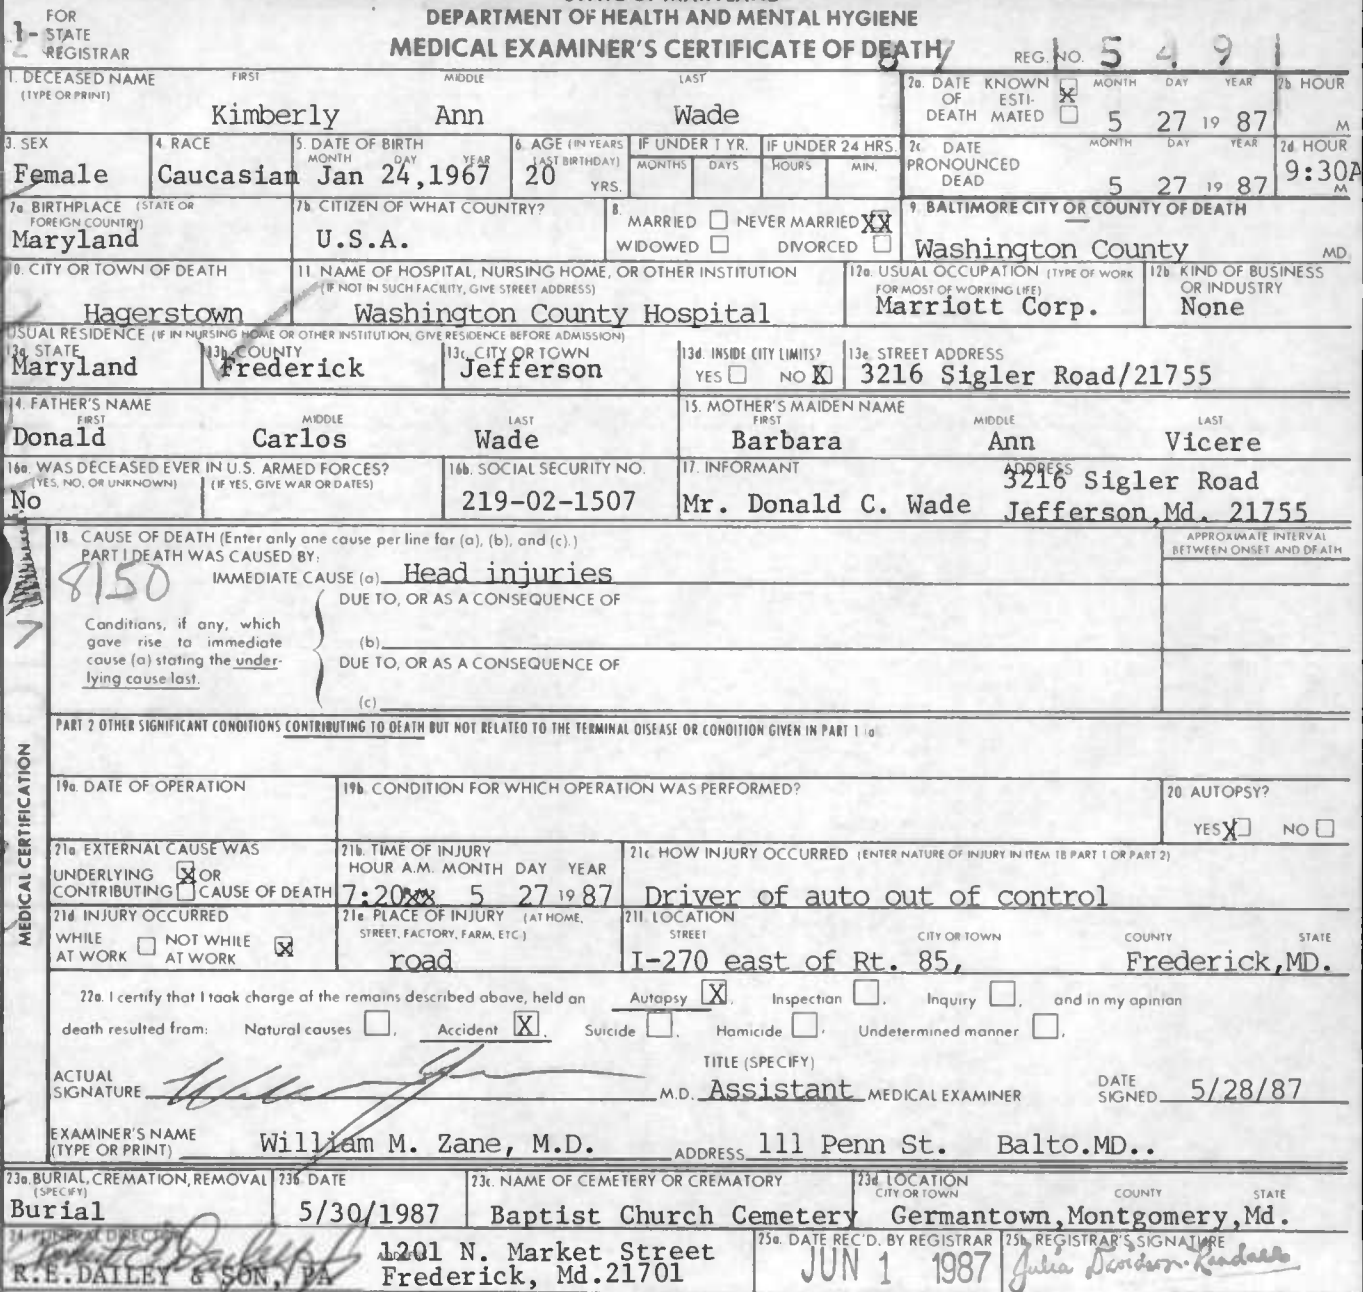 FOR
1- STATE
REGISTRAR
DEPARTMENT OF HEALTH AND MENTAL HYGIENE
MEDICAL EXAMINER'S CERTIFICATE OF DEATH
REG. NO. 5 4 9 1
1. DECEASED NAME FIRST MIDDLE LAST
(TYPE OR PRINT)
Kimberly Ann Wade
2a. DATE KNOWN X MONTH DAY YEAR 2b HOUR
OF ESTI-
DEATH MATED 5 27 19 87 M
3. SEX 4. RACE 5. DATE OF BIRTH 6. AGE (IN YEARS IF UNDER 1 YR. IF UNDER 24 HRS.
MONTH DAY YEAR LAST BIRTHDAY) MONTHS DAYS HOURS MIN.
Female Caucasian Jan 24,1967 20 YRS.
2c DATE MONTH DAY YEAR 2d HOUR
PRONOUNCED
DEAD 5 27 19 87 9:30A M
7a BIRTHPLACE (STATE OR FOREIGN COUNTRY)
Maryland
7b. CITIZEN OF WHAT COUNTRY?
U.S.A.
8. MARRIED NEVER MARRIED XX
WIDOWED DIVORCED
9. BALTIMORE CITY OR COUNTY OF DEATH
Washington County MD.
10. CITY OR TOWN OF DEATH
Hagerstown
11. NAME OF HOSPITAL, NURSING HOME, OR OTHER INSTITUTION
(IF NOT IN SUCH FACILITY, GIVE STREET ADDRESS)
Washington County Hospital
12a. USUAL OCCUPATION (TYPE OF WORK
FOR MOST OF WORKING LIFE)
Marriott Corp.
12b KIND OF BUSINESS
OR INDUSTRY
None
USUAL RESIDENCE (IF IN NURSING HOME OR OTHER INSTITUTION, GIVE RESIDENCE BEFORE ADMISSION)
13a. STATE 13b. COUNTY 13c. CITY OR TOWN 13d. INSIDE CITY LIMITS? 13e STREET ADDRESS
Maryland Frederick Jefferson YES NO X 3216 Sigler Road/21755
14. FATHER'S NAME
FIRST MIDDLE LAST
Donald Carlos Wade
15. MOTHER'S MAIDEN NAME
FIRST MIDDLE LAST
Barbara Ann Vicere
16a. WAS DECEASED EVER IN U.S. ARMED FORCES?
(YES, NO, OR UNKNOWN) (IF YES, GIVE WAR OR DATES)
No
16b. SOCIAL SECURITY NO.
219-02-1507
17. INFORMANT ADDRESS
3216 Sigler Road
Mr. Donald C. Wade Jefferson,Md. 21755
18 CAUSE OF DEATH (Enter only one cause per line for (a), (b), and (c).)
APPROXIMATE INTERVAL
BETWEEN ONSET AND DEATH
PART I DEATH WAS CAUSED BY:
8150
IMMEDIATE CAUSE (a) Head injuries
DUE TO, OR AS A CONSEQUENCE OF
Conditions, if any, which
gave rise to immediate
cause (a) stating the under-
lying cause last.
(b)
DUE TO, OR AS A CONSEQUENCE OF
(c)
PART 2 OTHER SIGNIFICANT CONDITIONS CONTRIBUTING TO DEATH BUT NOT RELATED TO THE TERMINAL DISEASE OR CONDITION GIVEN IN PART 1 a
MEDICAL CERTIFICATION
19a. DATE OF OPERATION 19b. CONDITION FOR WHICH OPERATION WAS PERFORMED? 20. AUTOPSY?
YES X NO
21a. EXTERNAL CAUSE WAS
UNDERLYING X OR
CONTRIBUTING CAUSE OF DEATH
21b. TIME OF INJURY
HOUR A.M. MONTH DAY YEAR
7:20xx 5 27 19 87
21c HOW INJURY OCCURRED (ENTER NATURE OF INJURY IN ITEM 18 PART 1 OR PART 2)
Driver of auto out of control
21d INJURY OCCURRED
WHILE AT WORK NOT WHILE AT WORK X
21e PLACE OF INJURY (AT HOME,
STREET, FACTORY, FARM, ETC.)
road
21f. LOCATION
STREET CITY OR TOWN COUNTY STATE
I-270 east of Rt. 85, Frederick,MD.
22a. I certify that I took charge of the remains described above, held an Autopsy X, Inspection, Inquiry, and in my opinion
death resulted from: Natural causes, Accident X, Suicide, Homicide, Undetermined manner.
TITLE (SPECIFY)
ACTUAL
SIGNATURE M.D. Assistant MEDICAL EXAMINER DATE SIGNED 5/28/87
EXAMINER'S NAME
(TYPE OR PRINT) William M. Zane, M.D. ADDRESS 111 Penn St. Balto.MD..
23a. BURIAL, CREMATION, REMOVAL
(SPECIFY)
Burial
23b DATE
5/30/1987
23c. NAME OF CEMETERY OR CREMATORY
Baptist Church Cemetery
23d. LOCATION
CITY OR TOWN COUNTY STATE
Germantown,Montgomery,Md.
24 FUNERAL DIRECTOR
R.E.DAILEY & SON, PA
ADDRESS
1201 N. Market Street
Frederick, Md.21701
25a. DATE REC'D. BY REGISTRAR
JUN 1 1987
25b. REGISTRAR'S SIGNATURE
Julia Davidson-Randall